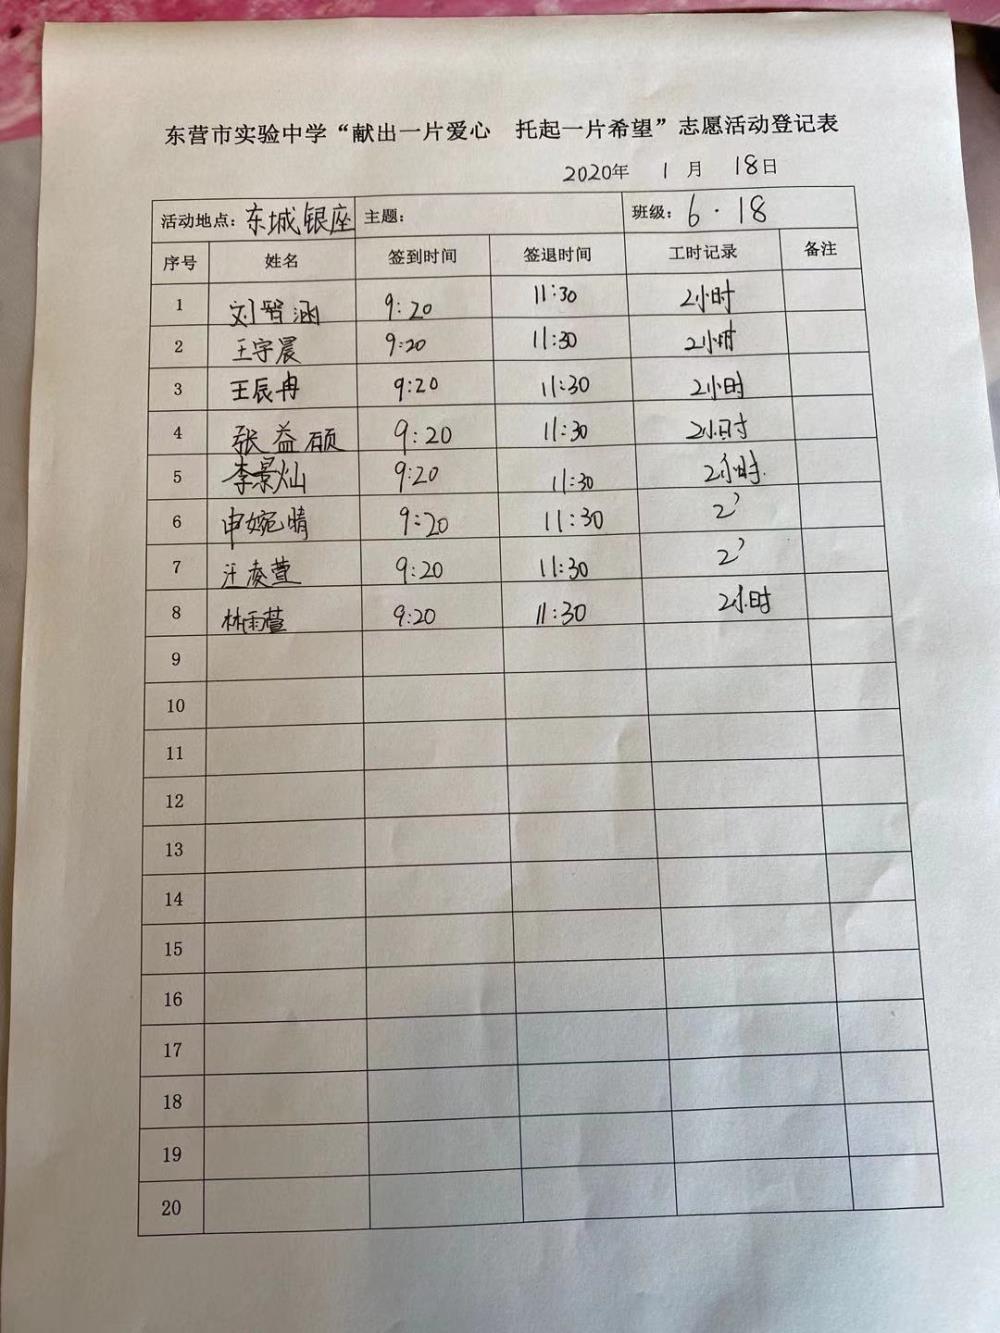 东营市实验中学“献出一片爱心 托起一片希望”志愿活动登记表
2020年 1月 18日
活动地点：东城银座 主题： 班级：6·18
序号 姓名 签到时间 签退时间 工时记录 备注
1 刘智涵 9:20 11:30 2小时
2 王宇晨 9:20 11:30 2小时
3 王辰冉 9:20 11:30 2小时
4 张益硕 9:20 11:30 2小时
5 李景灿 9:20 11:30 2小时.
6 申婉晴 9:20 11:30 2’
7 汪凌萱 9:20 11:30 2’
8 林雨萱 9:20 11:30 2小时
9
10
11
12
13
14
15
16
17
18
19
20